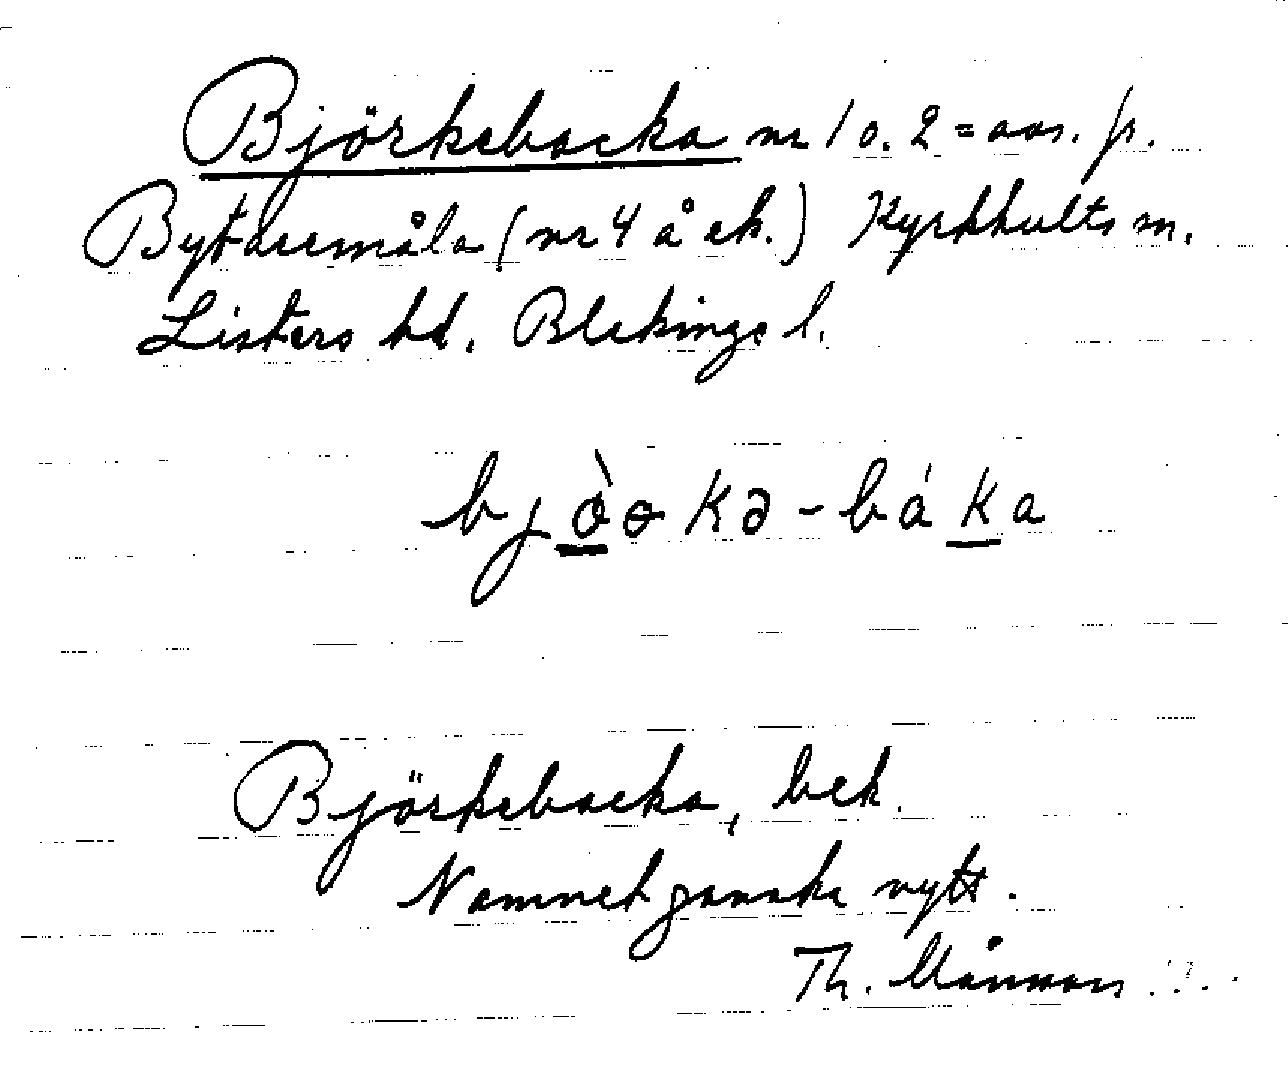 Björkebacka nr 1 o. 2 = avs. fr.
Bytaremåla (nr 4 å ek.) Kyrkhults sn.
Listers hd. Blekinge l.
bjòɵkə-báka
Björkebacka, bek.
Namnet ganska nytt.
Th. Månsson